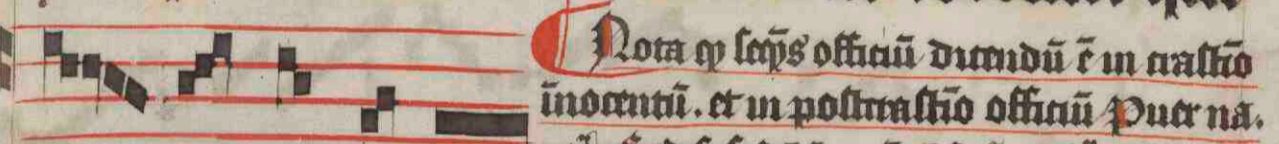 Nota qͥ seq̄ns officiū dicendū ē in crastīo
īnocentū. et in postcrastīo officiū Puer na.